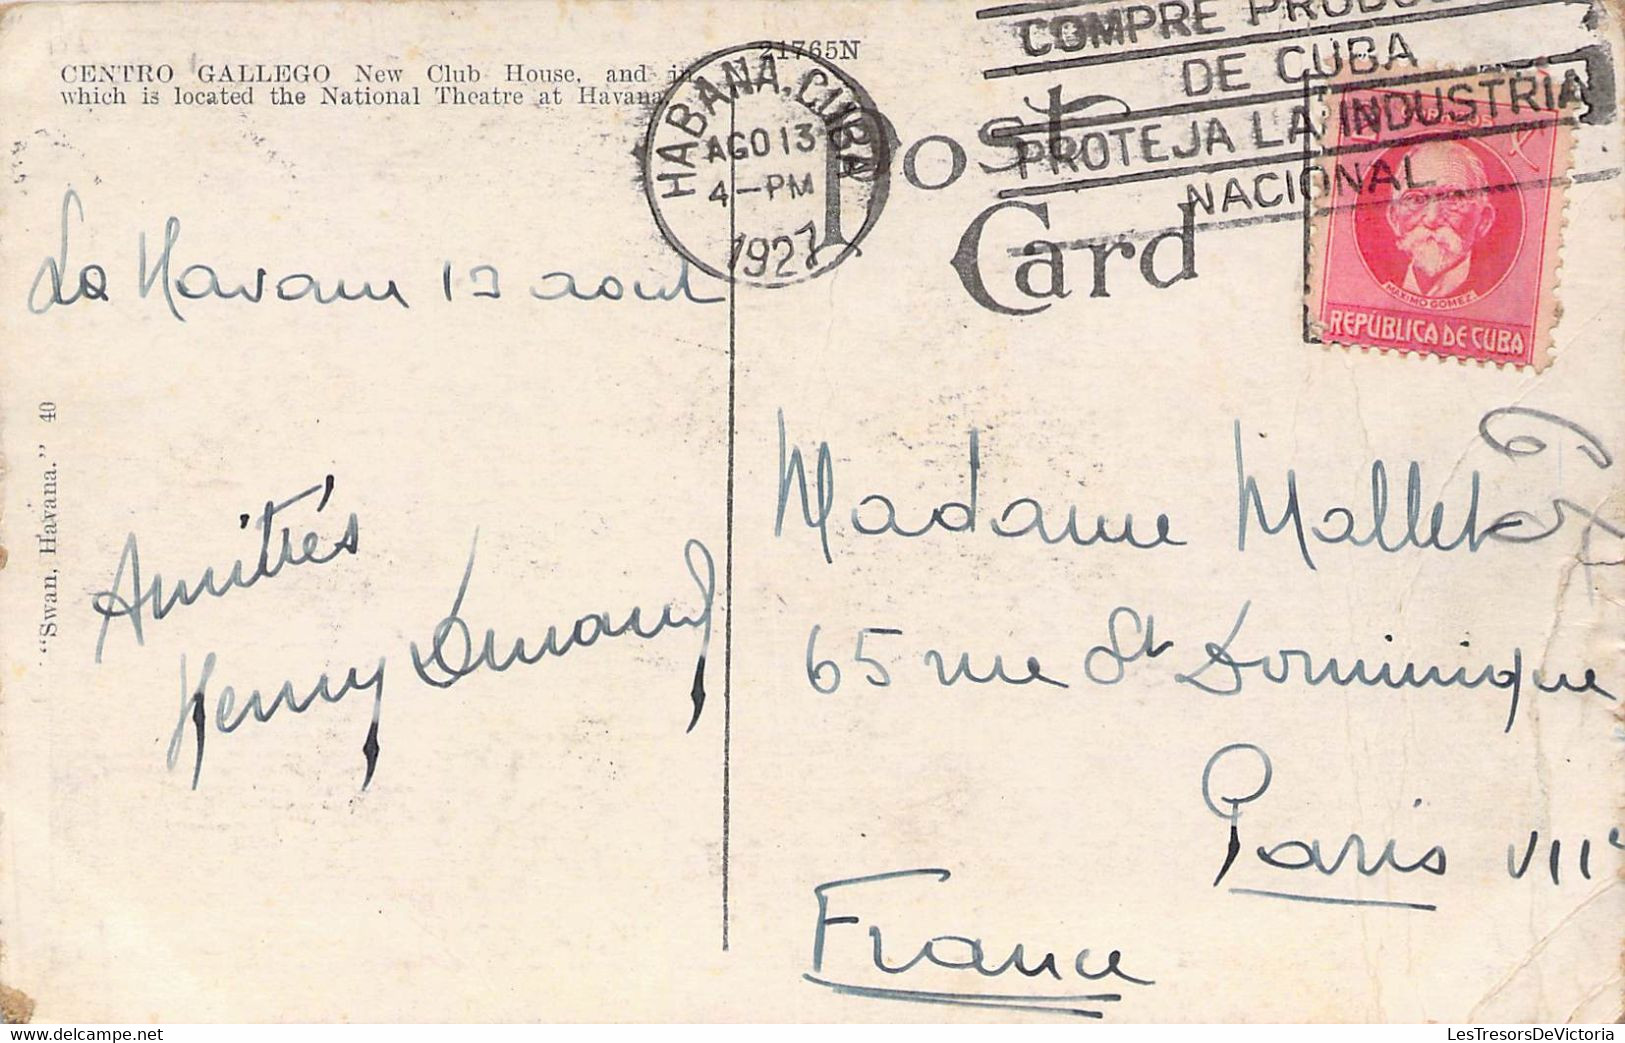 CENTRO GALLEGO New Club House, and in
which is located the National Theatre at Havana.
21765N
HABANA, CUBA
AGO 13
4-PM
1927
COMPRE PRODUC
DE CUBA
PROTEJA LA INDUSTRIA
NACIONAL
Post
Card
MAXIMO GOMEZ.
REPÚBLICA DE CUBA
La Havane 13 août
Amitiés
Henry
"Swan, Havana." 40
Madame Mallet
65 rue St Dominique
Paris VIIe
France
LesTresorsDeVictoria